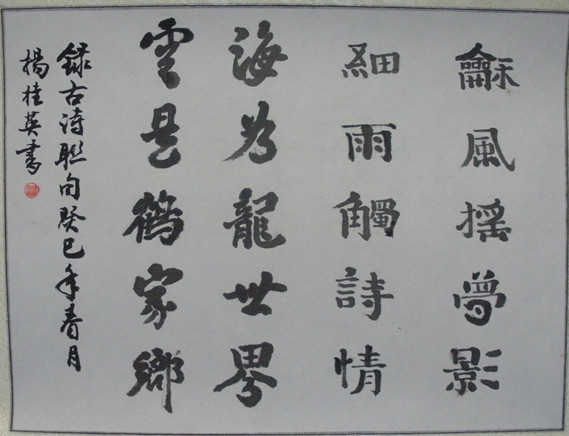 龢風搖夢影
細雨觸詩情
海為龍世界
雲是鶴家鄉
錄古詩聯句癸巳年春月
楊桂英書